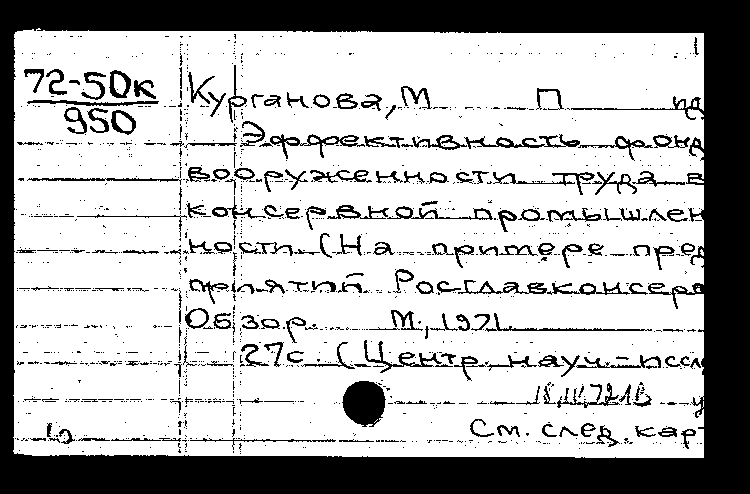 1
72-50к
950
Курганова, М П
Эффективность фонд
вооруженности труда в
консервной промышлен
ности. (На примере пред
приятий Росглавконсерв
Обзор. М., 1971.
27с. (Центр. науч.-иссл
См. след. кар